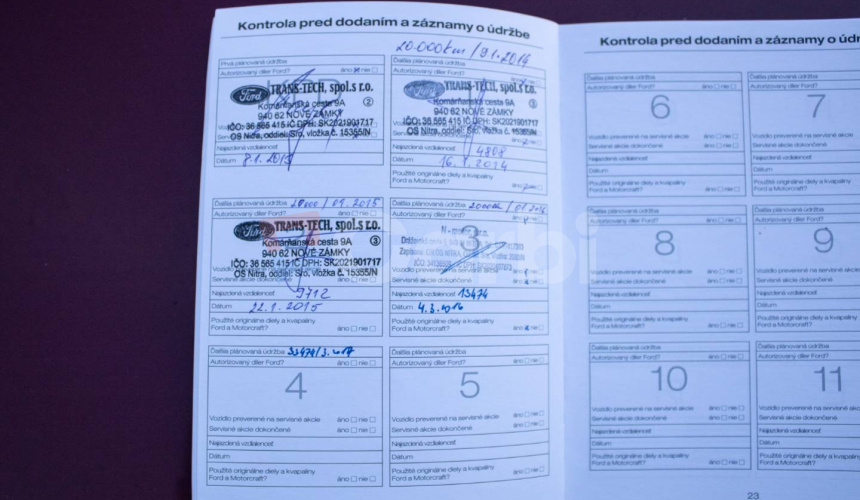 Kontrola pred dodaním a záznamy o údržbe
20.000km / 9.1.2014
Prvá plánovaná údržba
Autorizovaný díler Ford? áno nie
Ford TRANS-TECH, spol.s r.o.
Komárňanská cesta 9A
940 62 NOVÉ ZÁMKY ②
IČO: 36 565 415 IČ DPH: SK2021901717
OS Nitra, oddiel: Sro, vložka č. 15355/N
Najazdená vzdialenosť
Dátum 8.1.2013
Ďalšia plánovaná údržba
Autorizovaný díler Ford? áno nie
Ford TRANS-TECH, spol.s r.o.
Komárňanská cesta 9A ③
940 62 NOVÉ ZÁMKY
IČO: 36 565 415 IČ DPH: SK2021901717
OS Nitra, oddiel: Sro, vložka č. 15355/N
Najazdená vzdialenosť 4808
Dátum 16.1.2014
Použité originálne diely a kvapaliny
Ford a Motorcraft? áno nie
Ďalšia plánovaná údržba / 09.2015
Autorizovaný díler Ford? áno nie
Ford TRANS-TECH, spol.s r.o.
Komárňanská cesta 9A ③
940 62 NOVÉ ZÁMKY
IČO: 36 565 415 IČ DPH: SK2021901717
OS Nitra, oddiel: Sro, vložka č. 15355/N
Najazdená vzdialenosť 9712
Dátum 22.1.2015
Použité originálne diely a kvapaliny
Ford a Motorcraft? áno nie
Ďalšia plánovaná údržba
Autorizovaný díler Ford? áno nie
Najazdená vzdialenosť 13474
Dátum 4.3.2016
Použité originálne diely a kvapaliny
Ford a Motorcraft? áno nie
Ďalšia plánovaná údržba 33474/3.2017
Autorizovaný díler Ford? áno nie
4
Vozidlo preverené na servisné akcie áno nie
Servisné akcie dokončené áno nie
Najazdená vzdialenosť
Dátum
Použité originálne diely a kvapaliny
Ford a Motorcraft? áno nie
Ďalšia plánovaná údržba
Autorizovaný díler Ford? áno nie
5
Vozidlo preverené na servisné akcie áno nie
Servisné akcie dokončené áno nie
Najazdená vzdialenosť
Dátum
Použité originálne diely a kvapaliny
Ford a Motorcraft? áno nie
Kontrola pred dodaním a záznamy o údr
Ďalšia plánovaná údržba
Autorizovaný díler Ford? áno nie
6
Vozidlo preverené na servisné akcie áno nie
Servisné akcie dokončené áno nie
Najazdená vzdialenosť
Dátum
Použité originálne diely a kvapaliny
Ford a Motorcraft? áno nie
Ďalšia plánovaná údržba
Autorizovaný díler Ford?
7
Vozidlo preverené na servisné akcie
Servisné akcie dokončené
Najazdená vzdialenosť
Dátum
Použité originálne diely a kvapaliny
Ford a Motorcraft?
Ďalšia plánovaná údržba
Autorizovaný díler Ford? áno nie
8
Vozidlo preverené na servisné akcie áno nie
Servisné akcie dokončené áno nie
Najazdená vzdialenosť
Dátum
Použité originálne diely a kvapaliny
Ford a Motorcraft? áno nie
Ďalšia plánovaná údržba
Autorizovaný díler Ford?
9
Vozidlo preverené na servisné akcie
Servisné akcie dokončené
Najazdená vzdialenosť
Dátum
Použité originálne diely a kvapaliny
Ford a Motorcraft?
Ďalšia plánovaná údržba
Autorizovaný díler Ford? áno nie
10
Vozidlo preverené na servisné akcie áno nie
Servisné akcie dokončené áno nie
Najazdená vzdialenosť
Dátum
Použité originálne diely a kvapaliny
Ford a Motorcraft? áno nie
Ďalšia plánovaná údržba
Autorizovaný díler Ford?
11
Vozidlo preverené na servisné akcie
Servisné akcie dokončené
Najazdená vzdialenosť
Dátum
Použité originálne diely a kvapaliny
Ford a Motorcraft?
23